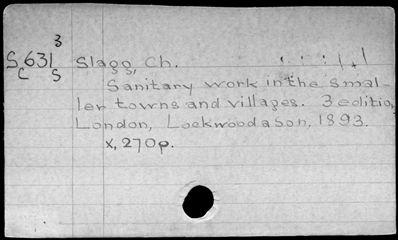 3
S 631 Slagg, Ch.
C S
Sanitary work in the smal-
ler towns and villages. 3 editio
London, Lockwood a son, 1893.
x, 270p.